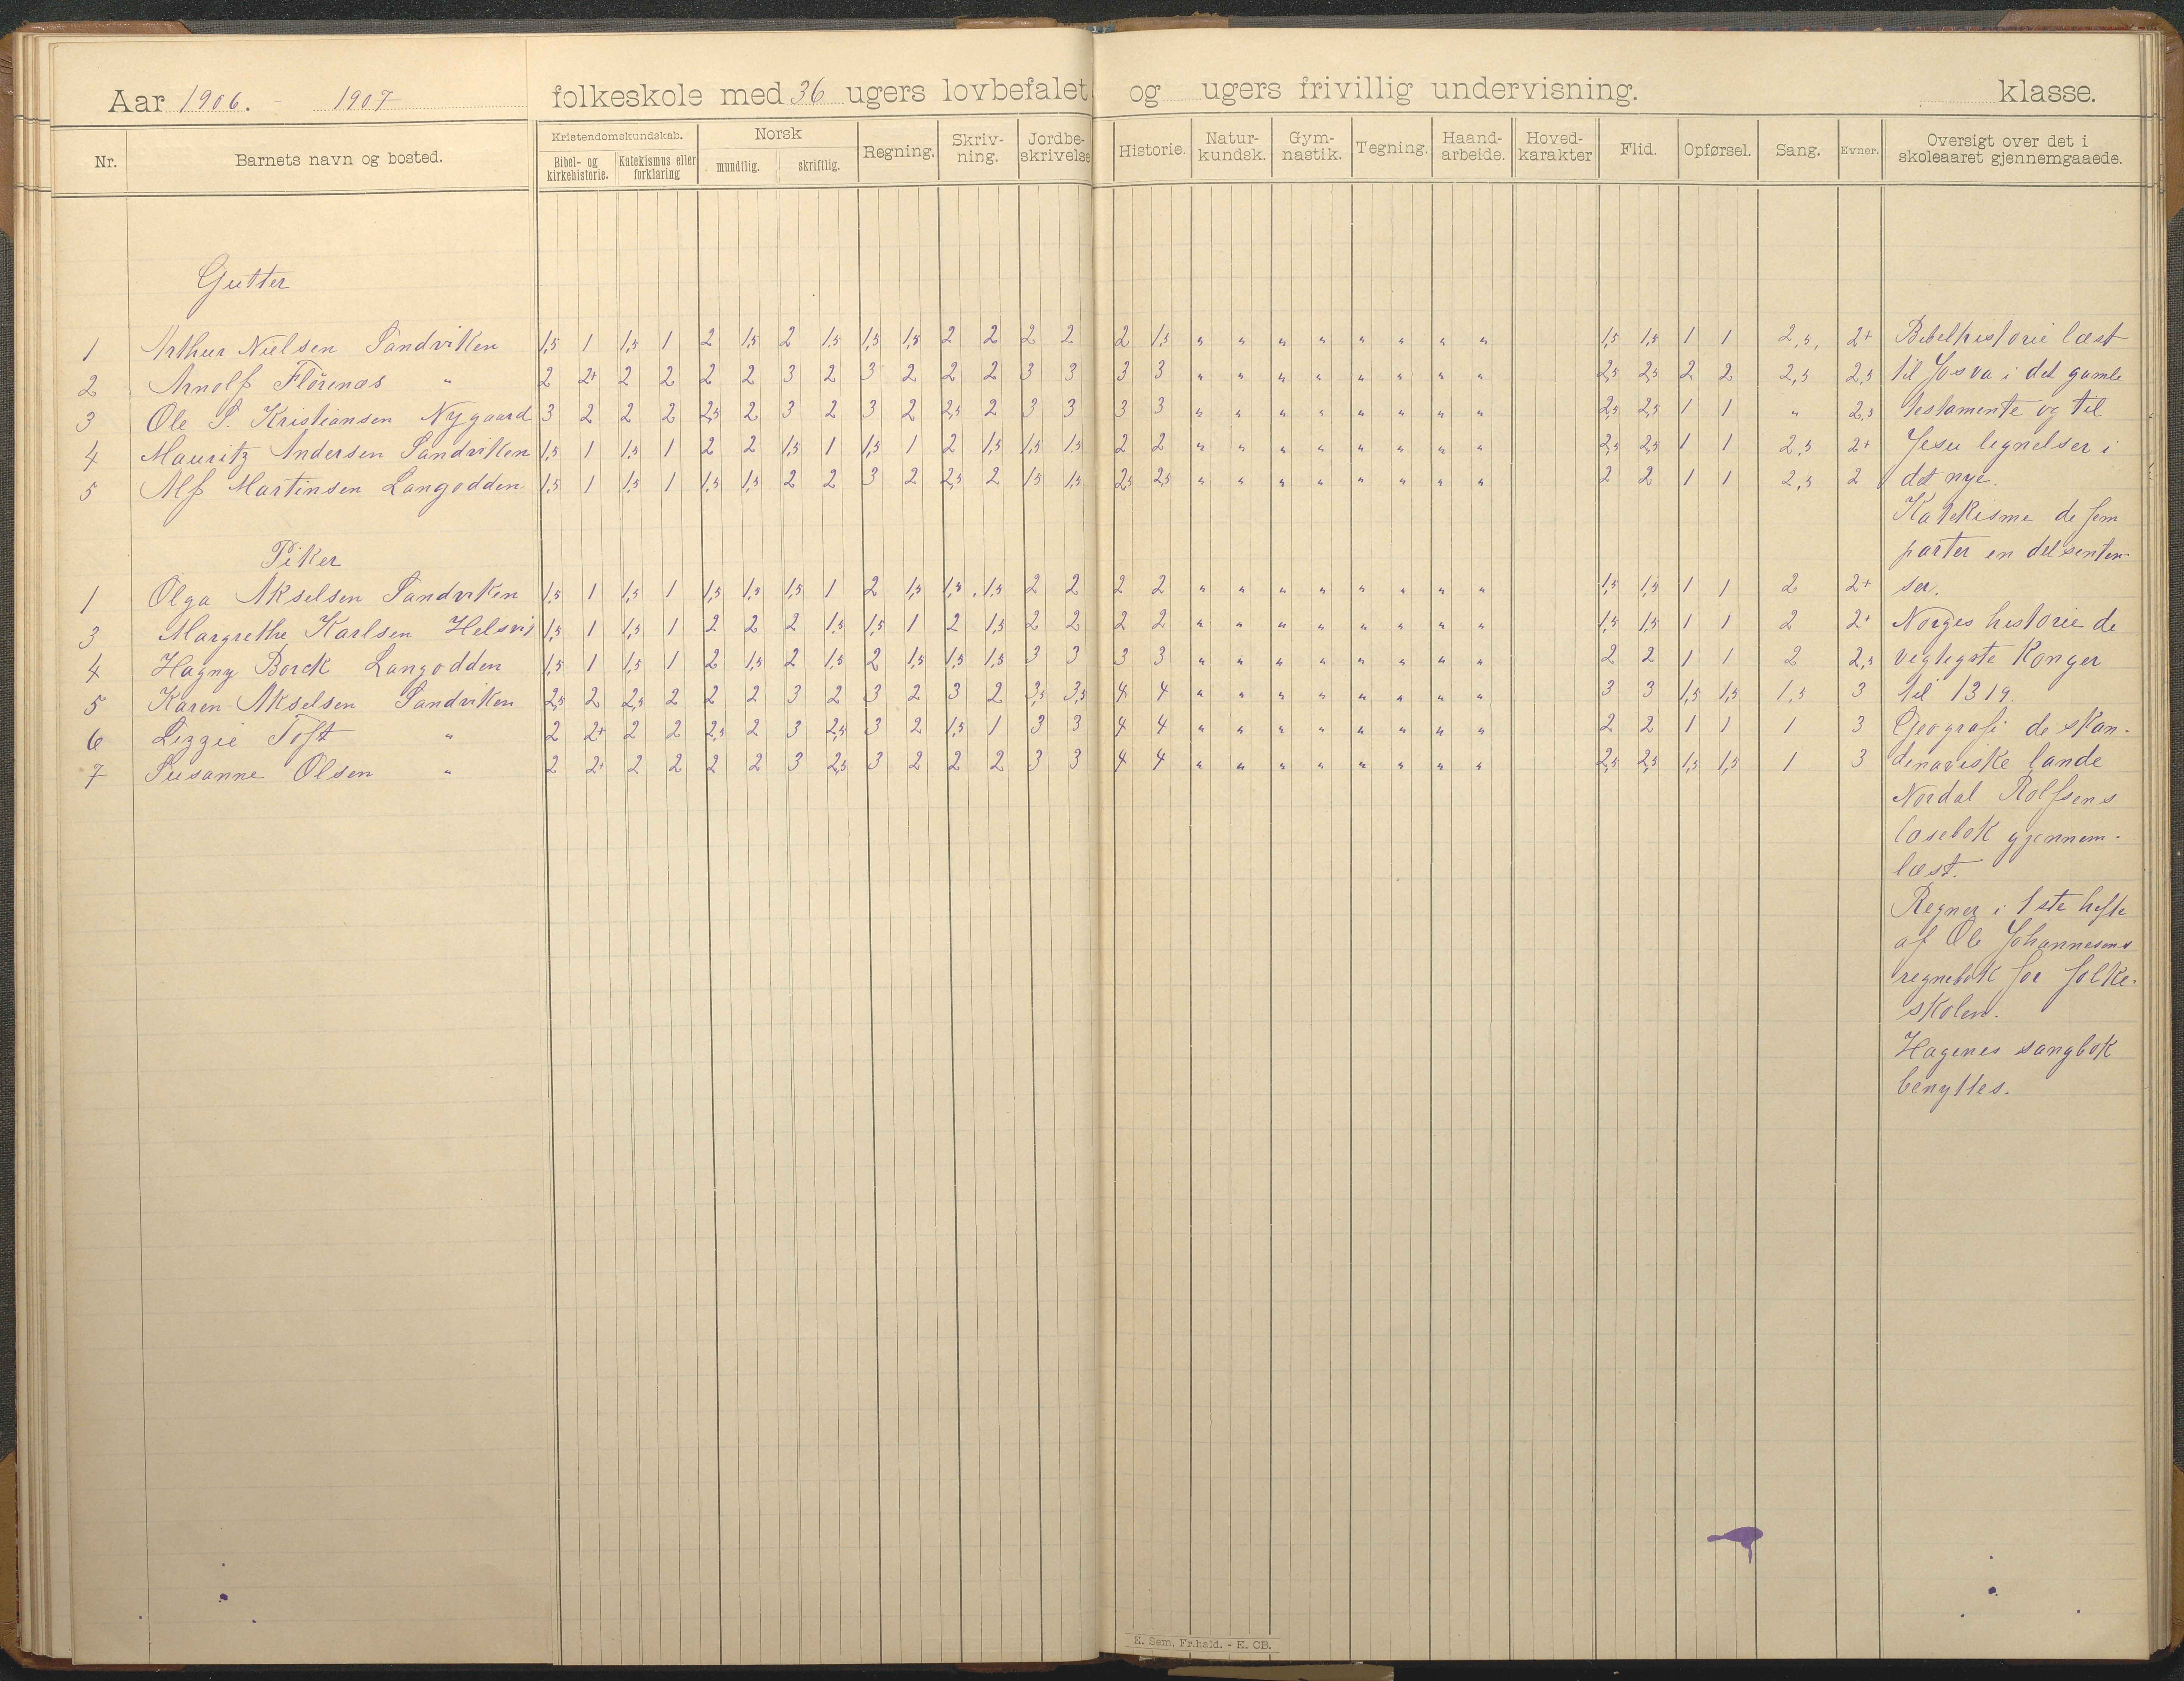 Aar 1906. - 1907 folkeskole med 36 ugers lovbefalet og ugers frivillig undervisning. klasse.
Nr. Barnets navn og bosted. Kristendomskundskab. Bibel- og kirkehistorie. Katekismus eller forklaring Norsk mundtlig. skriftlig. Regning. Skriv-ning. Jordbe-skrivelse Historie. Natur-kundsk. Gym-nastik. Tegning. Haand-arbeide. Hoved-karakter Flid. Opførsel. Sang. Evner. Oversigt over det i skoleaaret gjennemgaaede.
Gutter
1 Arthur Nielsen Sandviken 1,5 1 1,5 1 2 1,5 2 1,5 1,5 1,5 2 2 2 2 2 1,5 " " " " " " " " 1,5 1,5 1 1 2,5, 2+ Bibelhistorie læst
2 Arnolf Flørenæs " 2 2+ 2 2 2 2 3 2 3 2 2 2 3 3 3 3 " " " " " " " " 2,5 2,5 2 2 2,5 2,5 til Josva i det gamle
3 Ole S. Kristiansen Nygaard 3 2 2 2 2,5 2 3 2 3 2 2,5 2 3 3 3 3 " " " " " " " " 2,5 2,5 1 1 " 2,5 testamente og til
4 Mauritz Andersen Sandviken 1,5 1 1,5 1 2 2 1,5 1 1,5 1 2 1,5 1,5 1,5 2 2 " " " " " " " " 2,5 2,5 1 1 2,5 2+ Jesu lignelser i
5 Alf Martinsen Langodden 1,5 1 1,5 1 1,5 1,5 2 2 3 2 2,5 2 1,5 1,5 2,5 2,5 " " " " " " " " 2 2 1 1 2,5 2 det nye.
Katekisme de fem
Piker parter en del senten-
1 Olga Akselsen Sandviken 1,5 1 1,5 1 1,5 1,5 1,5 1 2 1,5 1,5 1,5 2 2 2 2 " " " " " " " " 1,5 1,5 1 1 2 2+ ser.
3 Margrethe Karlsen Helsvig 1,5 1 1,5 1 2 2 2 1,5 1,5 1 2 1,5 2 2 2 2 " " " " " " " " 1,5 1,5 1 1 2 2+ Norges historie de
4 Hagny Borck Langodden 1,5 1 1,5 1 2 1,5 2 1,5 2 1,5 1,5 1,5 3 3 3 3 " " " " " " " " 2 2 1 1 2 2,5 vegtigste Konger
5 Karen Akselsen Sandviken 2,5 2 2,5 2 2 2 3 2 3 2 3 2 3,5 3,5 4 4 " " " " " " " " 3 3 1,5 1,5 1,5 3 til 1319.
6 Lizzie Toft " 2 2+ 2 2 2,5 2 3 2,5 3 2 1,5 1 3 3 4 4 " " " " " " " " 2 2 1 1 1 3 Geografi de skan-
7 Susanne Olsen " 2 2+ 2 2 2 2 3 2,5 3 2 2 2 3 3 4 4 " " " " " " " " 2,5 2,5 1,5 1,5 1 3 denaviske lande
Nordal Rolfsens
læsebok gjennem-
læst.
Regner i 1ste hefte
af Ole Johannesens
regnebok for folke-
skolen.
Hagenes sangbok
benyttes.
E. Sem, Fr.hald. - E. CB.